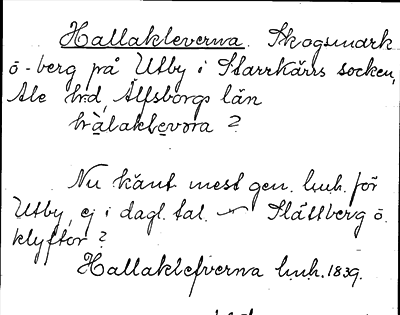 Hallakleverna. Skogsmark
ö-berg på Utby i Starrkärrs socken,
Ale hd, Älfsborgs län
hàlaklevọra ?
Nu känt mest gen. l.u.h. för
Utby, ej i dagl. tal. — Slättberg ö.
klyftor ?
Hallaklefverna l.u.h. 1839.